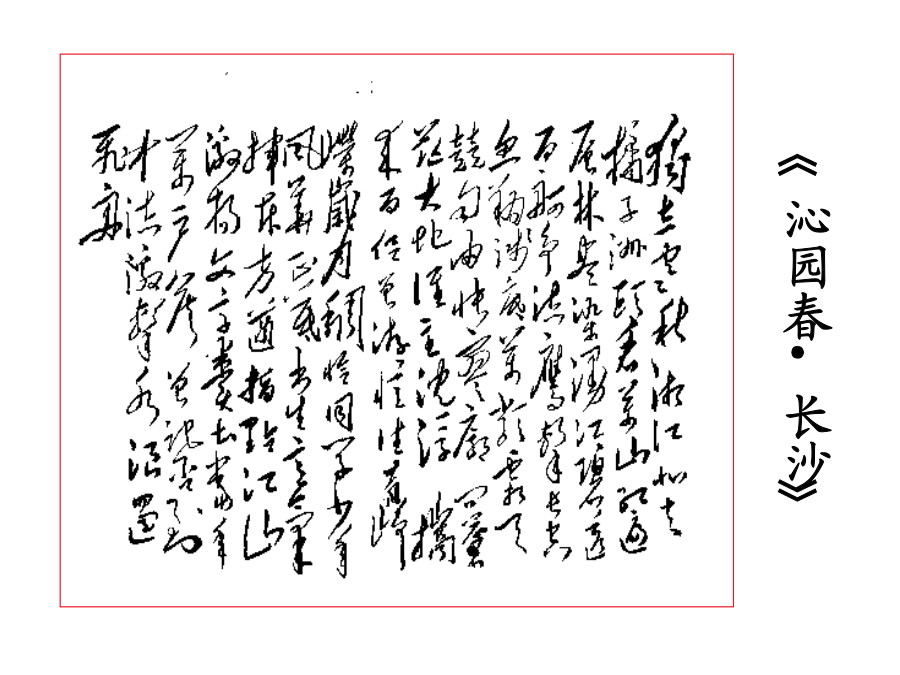 《沁园春·长沙》
独立寒秋湘江北去
橘子洲头看万山红遍
层林尽染漫江碧透
百舸争流鹰击长空
鱼翔浅底万类霜天
竞自由怅寥廓问苍
茫大地谁主沈浮携
来百侣曾游忆往昔峥
嵘岁月稠恰同学少年
风华正茂书生意气
挥斥方遒指点江山
激扬文字粪土当年
万户侯曾记否到
中流激击水浪遏
飞舟